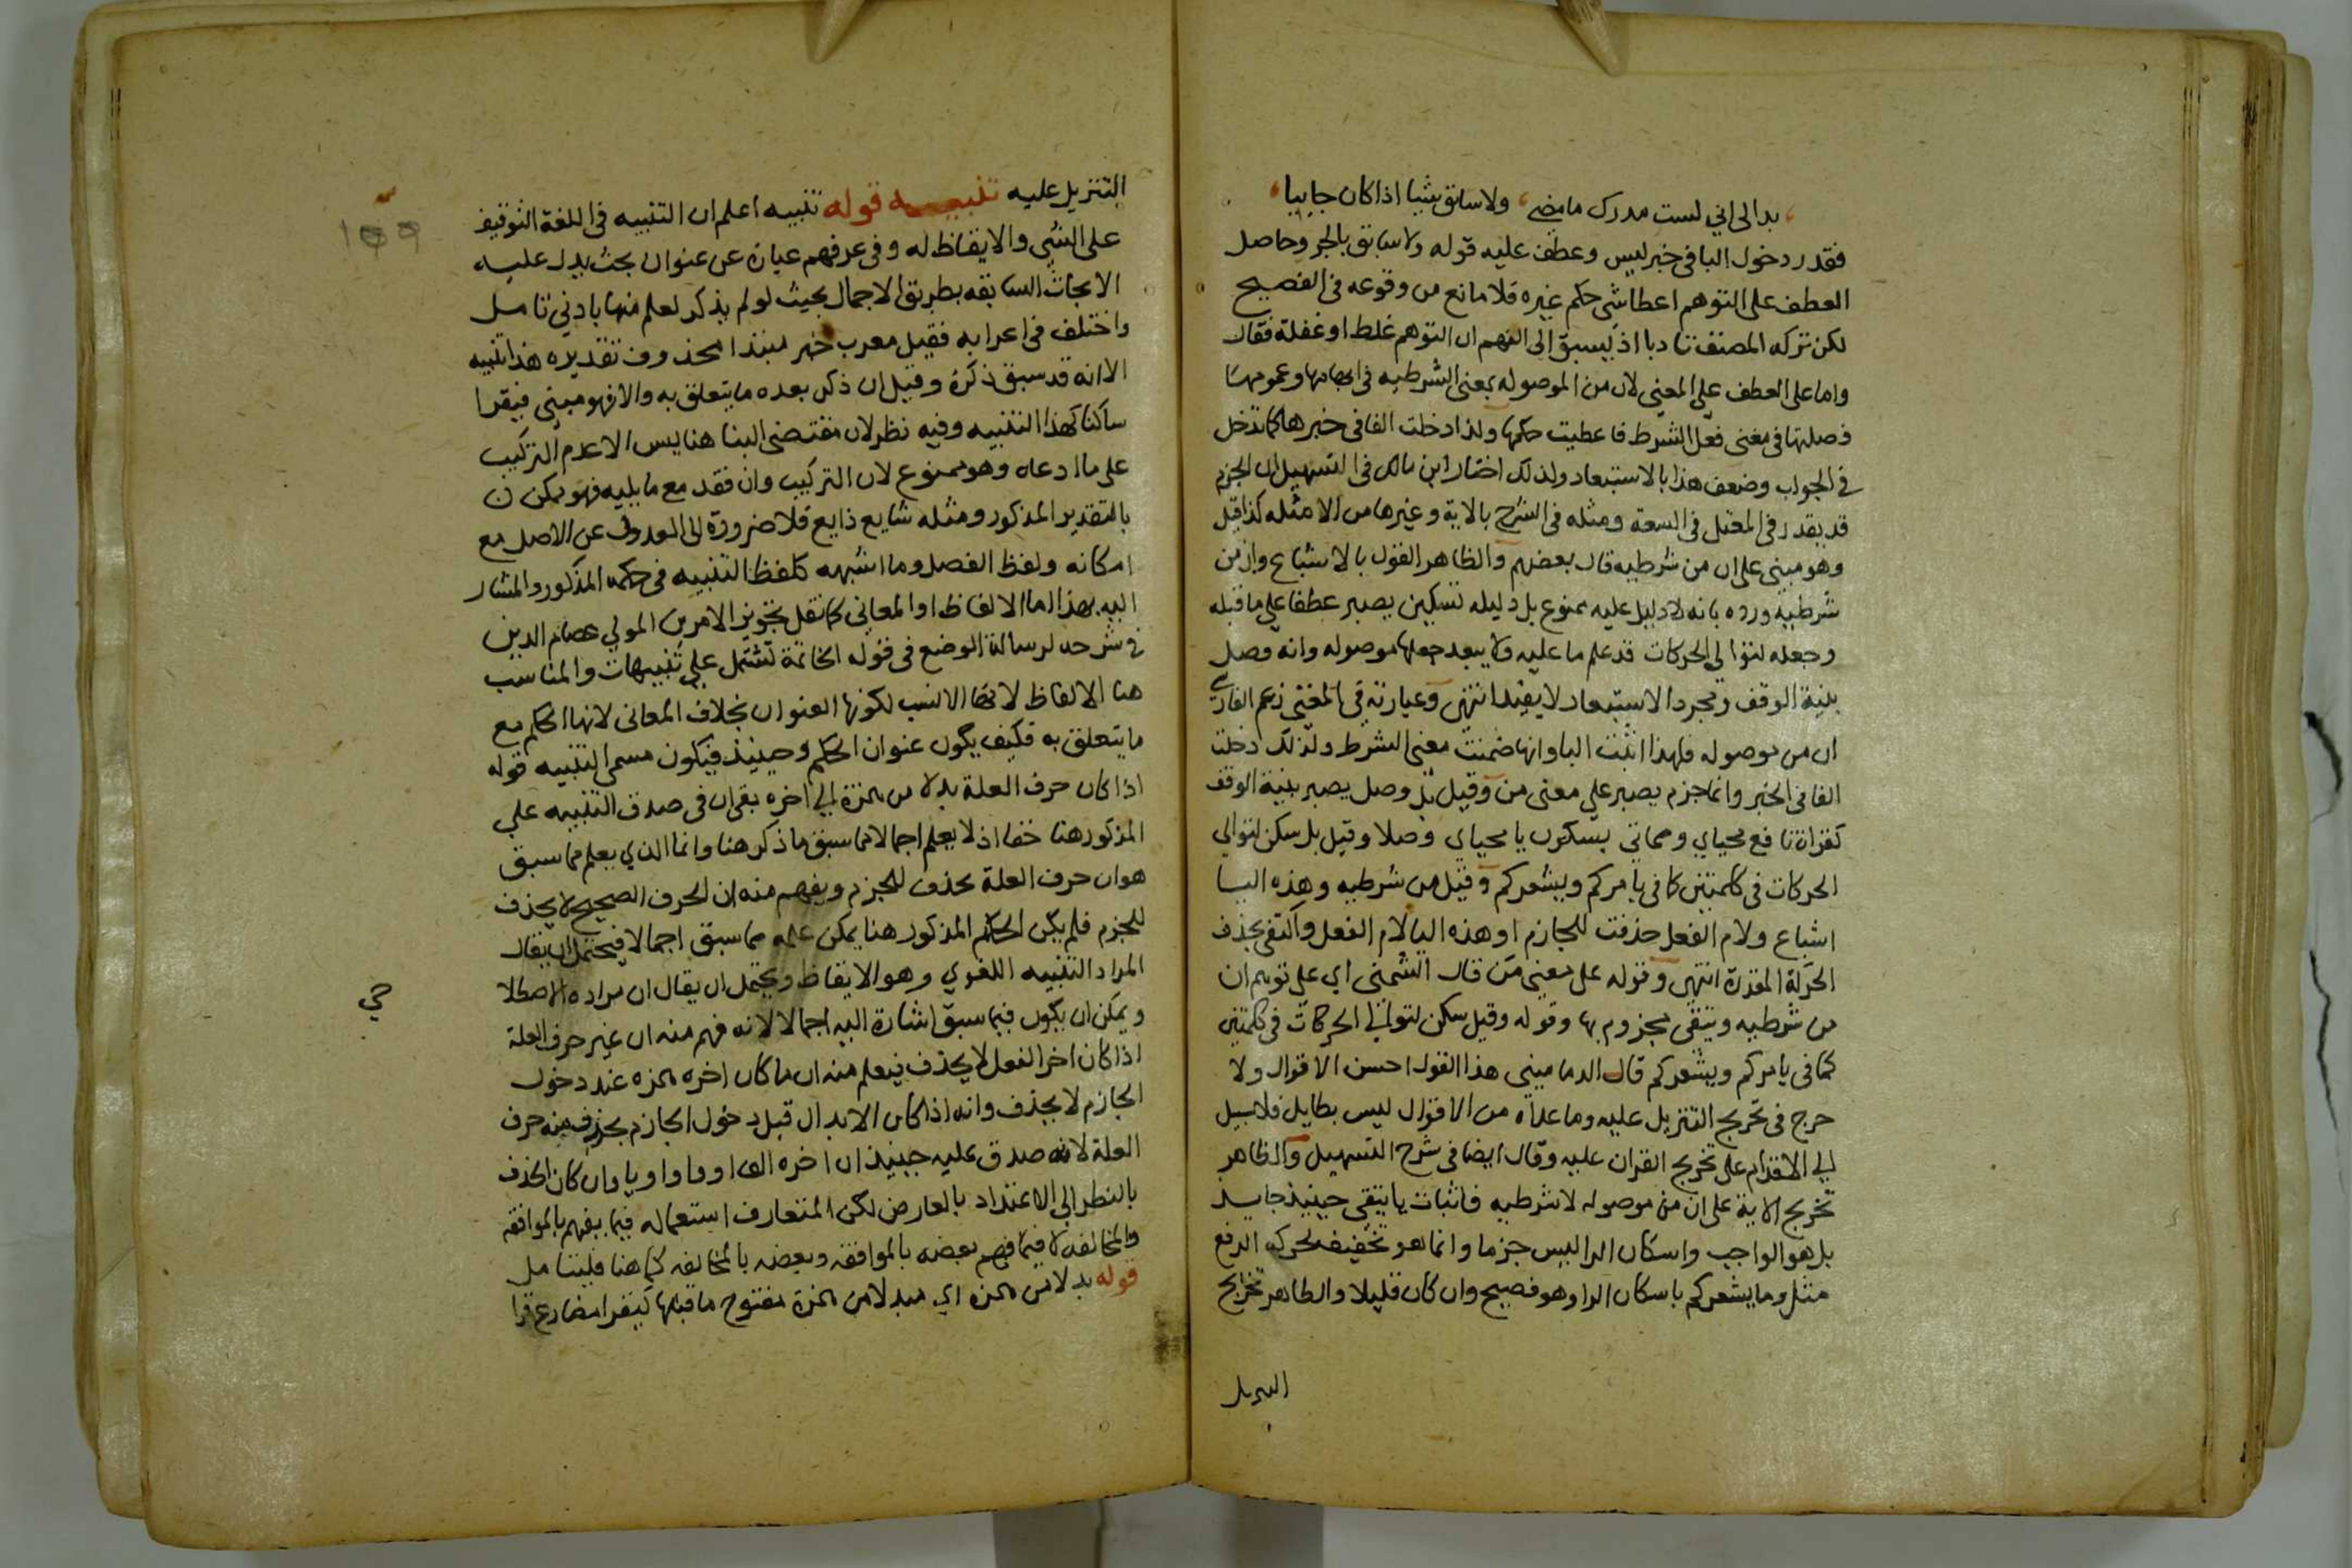 بدا لى انى لست مدرك ما مضى ولا سابق شيا اذا كان جاييا
فقدر دخول البا فى خبر ليس وعطف عليه قوله ولا سابق بالجر وحاصل
العطف على التوهم اعطا شى حكم غيره فلا مانع من وقوعه فى الفصيح
لكن تركه المصنف تادبا اذ ليسبق الى الفهم ان التوهم غلط او غفلة فقال
واما على العطف على المعنى لان من الموصوله بمعنى الشرطيه فى ابهامها وعمومها
فصلتها فى معنى فعل الشرط فاعطيت حكمها ولذا دخلت الفا فى خبرها كما تدخل
فى الجواب وضعف هذا بالاستبعاد ولذلك اختار ابن مالك فى التسهيل ان الجزم
قد يقدر فى المعتل فى السعة ومثله فى الشرح بالاية وغيرها من الامثله كذا قيل
وهو مبنى على ان من شرطيه قال بعضهم والظاهر القول بالاشباع وان من
شرطيه ورده بانه لا دليل عليه ممنوع بل دليله تسكين يصبر عطفا على ما قبله
وجعله لتوالى الحركات قد علم ما عليه ولا يبعد جعلها موصوله وانه وصل
بنية الوقف ومجرد الاستبعاد لا يفيد انتهى وعبارته فى المغنى زعم الفارسى
ان من موصوله فلهذا اثبت اليا وانها ضمنت معنى الشرط ولذلك دخلت
الفا فى الخبر وانما جزم يصبر على معنى من وقيل بل وصل يصبر بنية الوقف
كقراة نافع محياي ومماتى بسكون يا محياي وصلا وقيل بل سكن لتوالى
الحركات فى كلمتين كما فى يامركم ويشعركم وقيل من شرطيه وهذه اليا
اشباع ولام الفعل حذفت للجازم او هذه اليا لام الفعل واكتفى بحذف
الحركة المقدرة انتهى وقوله على معنى من قال الشمنى اي على توهم ان
من شرطيه ويتقى مجزوم بها وقوله وقيل سكن لتوالى الحركات فى كلمتين
كما فى يامركم ويشعركم قال الدمامينى هذا القول احسن الاقوال ولا
حرج فى تخريج التنزيل عليه وما عداه من الاقوال ليس بطايل فلا سبيل
الى الاقدام على تخريج القران عليه وقال ايضا فى شرح التسهيل والظاهر
تخريج الاية على ان من موصوله لا شرطيه فاثبات يا يتقى حينيذ جايد
بل هو الواجب واسكان الرا ليس جزما وانما هو تخفيف لحركه الرفع
مثل وما يشعركم باسكان الرا وهو فصيح وان كان قليلا والظاهر تخريج
التنزيل
١٥٩
التنزيل عليه تنبيه قوله تنبيه اعلم ان التنبيه فى اللغة التوقيف
على الشى والايقاظ له وفى عرفهم عبارة عن عنوان بحث يدل عليه
الابحاث السابقه بطريق الاجمال بحيث لو لم يذكر لعلم منها بادنى تامل
واختلف فى اعرابه فقيل معرب خبر مبتدا محذوف تقديره هذا تنبيه
الا انه قد سبق ذكره وقيل ان ذكر بعده ما يتعلق به والا فهو مبنى فيقرا
ساكنا كهذا التنبيه وفيه نظر لان مقتضى البنا هنا ليس الا عدم التركيب
على ما ادعاه وهو ممنوع لان التركيب وان فقد مع ما يليه فهو ممكن
بالتقدير المذكور ومثله شايع ذايع فلا ضرورة الى العدول عن الاصل مع
امكانه ولفظ الفصل وما اشبهه كلفظ التنبيه فى حكمه المذكور والمشار
اليه بهذا اما الالفاظ او المعانى كما نقل تجويز الامرين المولى عصام الدين
فى شرحه لرسالة الوضع فى قوله الخاتمة تشتمل على تنبيهات والمناسب
هنا الالفاظ لانها الانسب لكونها العنوان بخلاف المعانى لانها الحكم مع
ما يتعلق به فكيف يكون عنوان الحكم وحينيذ فيكون مسمى التنبيه قوله
اذا كان حرف العلة بدلا من همزة الى اخره بقى ان فى صدق التنبيه على
المذكور هنا خفا اذ لا يعلم اجمالا مما سبق ما ذكر هنا وانما الذي يعلم مما سبق
هو ان حرف العلة يحذف للجزم ويفهم منه ان الحرف الصحيح لا يحذف
للجزم فلم يكن الحكم المذكور هنا يمكن علمه مما سبق اجمالا فيحتمل ان يقال
المراد التنبيه اللغوي وهو الايقاظ ويحتمل ان يقال ان مراده الاصطلا
حي
ويمكن ان يكون فيما سبق اشارة اليه اجمالا لانه فهم منه ان غير حرف العلة
اذا كان اخر الفعل لا يحذف فيعلم منه ان ما كان اخره همزه عند دخول
الجازم لا يحذف وانه اذا كان الابدال قبل دخول الجازم يحذف منه حرف
العلة لانه صدق عليه حينيذ ان اخره الف او واو او يا وان كان الحذف
بالنظر الى الاعتداد بالعارض لكن المتعارف استعماله فيما يفهم بالموافقه
والمخالفه لا فيما فهم بعضه بالموافقه وبعضه بالمخالفه كما هنا فليتامل
قوله بدلا من همزه اي مبدلا من همزة مفتوح ما قبلها كيقرا مضارع قرا